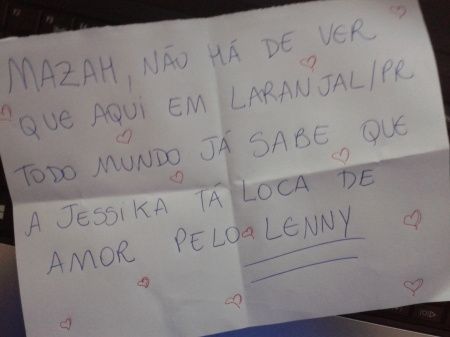 MAZAH, NÃO HÁ DE VER
QUE AQUI EM LARANJAL/PR
TODO MUNDO JÁ SABE QUE
A JESSIKA TÁ LOCA DE
AMOR PELO LENNY